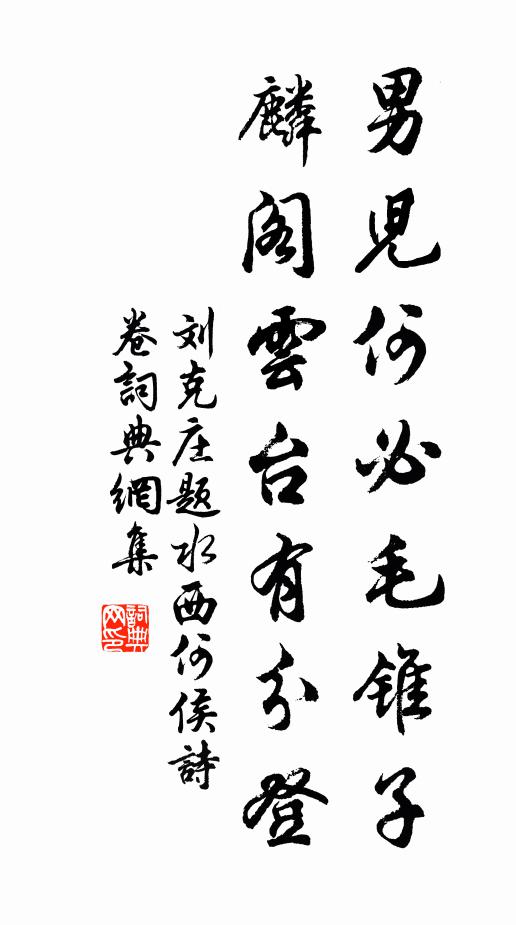 男児何必毛錐子
麟阁雲台有分登
刘克庄题水西何侯詩
卷詞典網集
詞典
网印